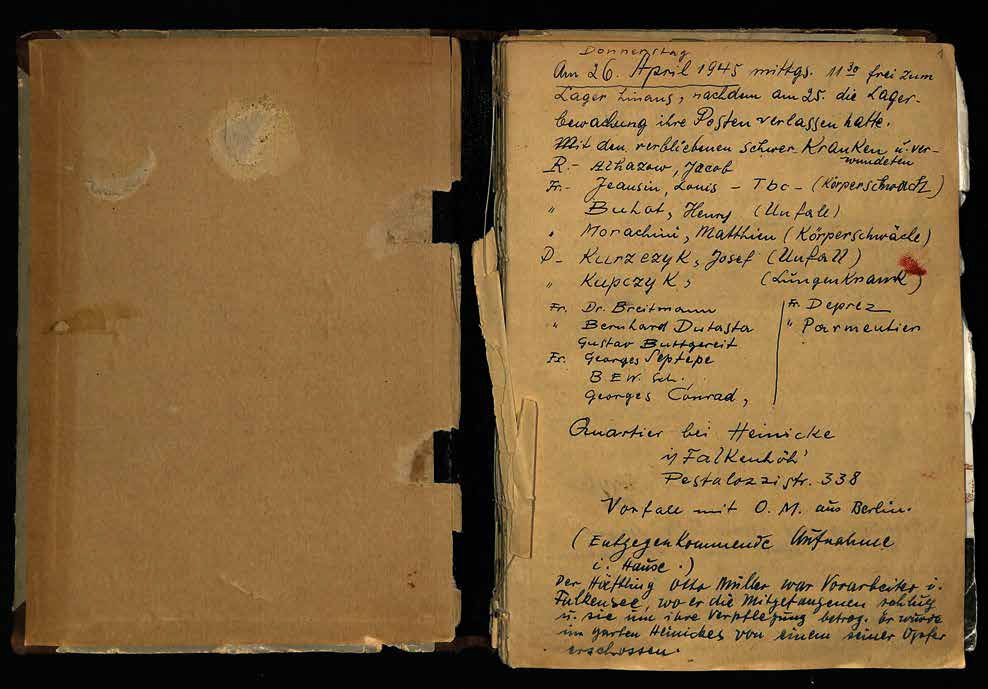 1
Donnerstag
Am 26. April 1945 mittgs. 11 30 frei zum
Lager hinaus, nachdem am 25. die Lager-
bewachung ihre Posten verlassen hatte.
Mit den verbliebenen schwer Kranken u. ver-
wundeten
R.- Alhazow, Jacob
Fr.- Jeausin, Louis - Tbc - (Körperschwach)
" Buhot, Henry (Unfall)
" Morachini, Matthieu (Körperschwäche)
P- Kurzczyk, Josef (Unfall)
" Kupczyk, (Lungenkrank)
Fr. Dr. Breitmann
" Bernhard Dutasta
Gustav Buttgereit
Fr. Georges Septepe
B.E.W. Sch.,
Georges Conrad,
Fr. Deprez
" Parmentier
Quartier bei Heinicke
i/ Falkenhöh'
Pestalozzistr. 338
Vorfall mit O. M. aus Berlin.
(Entgegenkommende Aufnahme
i. Hause.)
Der Häftling Otto Müller war Vorarbeiter i.
Falkensee, wo er die Mitgefangenen schlug
u. sie um ihre Verpflegung betrog. Er wurde
im Garten Heinickes von einem seiner Opfer
erschossen.